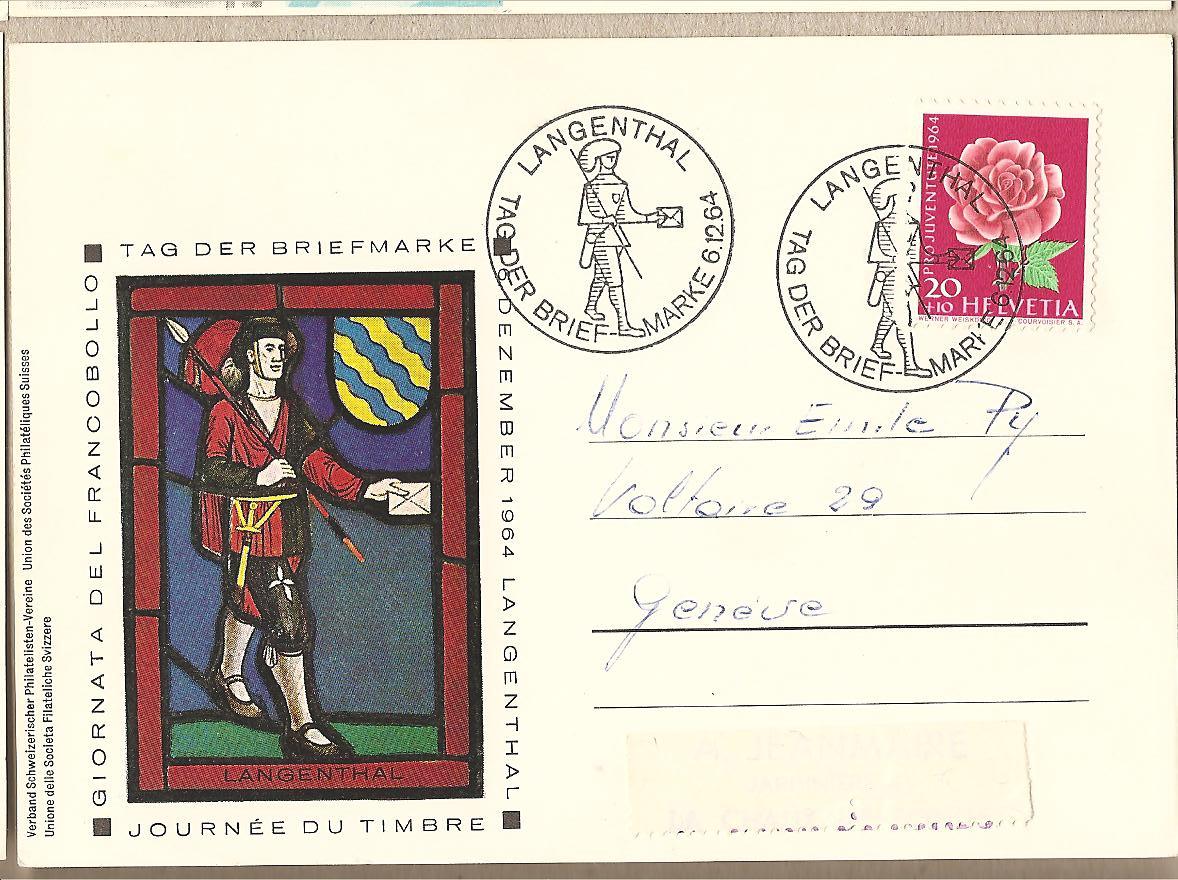 LANGENTHAL
TAG DER BRIEF-MARKE 6.12.64
LANGENTHAL
TAG DER BRIEF-MARKE 6.12.64
PRO JUVENTUTE 1964
20
+10 HELVETIA
WERNER WEISKÖNIG COURVOISIER S.A.
TAG DER BRIEFMARKE
6. DEZEMBER 1964 LANGENTHAL
GIORNATA DEL FRANCOBOLLO
JOURNÉE DU TIMBRE
LANGENTHAL
Verband Schweizerischer Philatelisten-Vereine Union des Sociétés Philatéliques Suisses
Unione delle Societa Filateliche Svizzere
Monsieur Emile Py
Voltaire 29
Genève